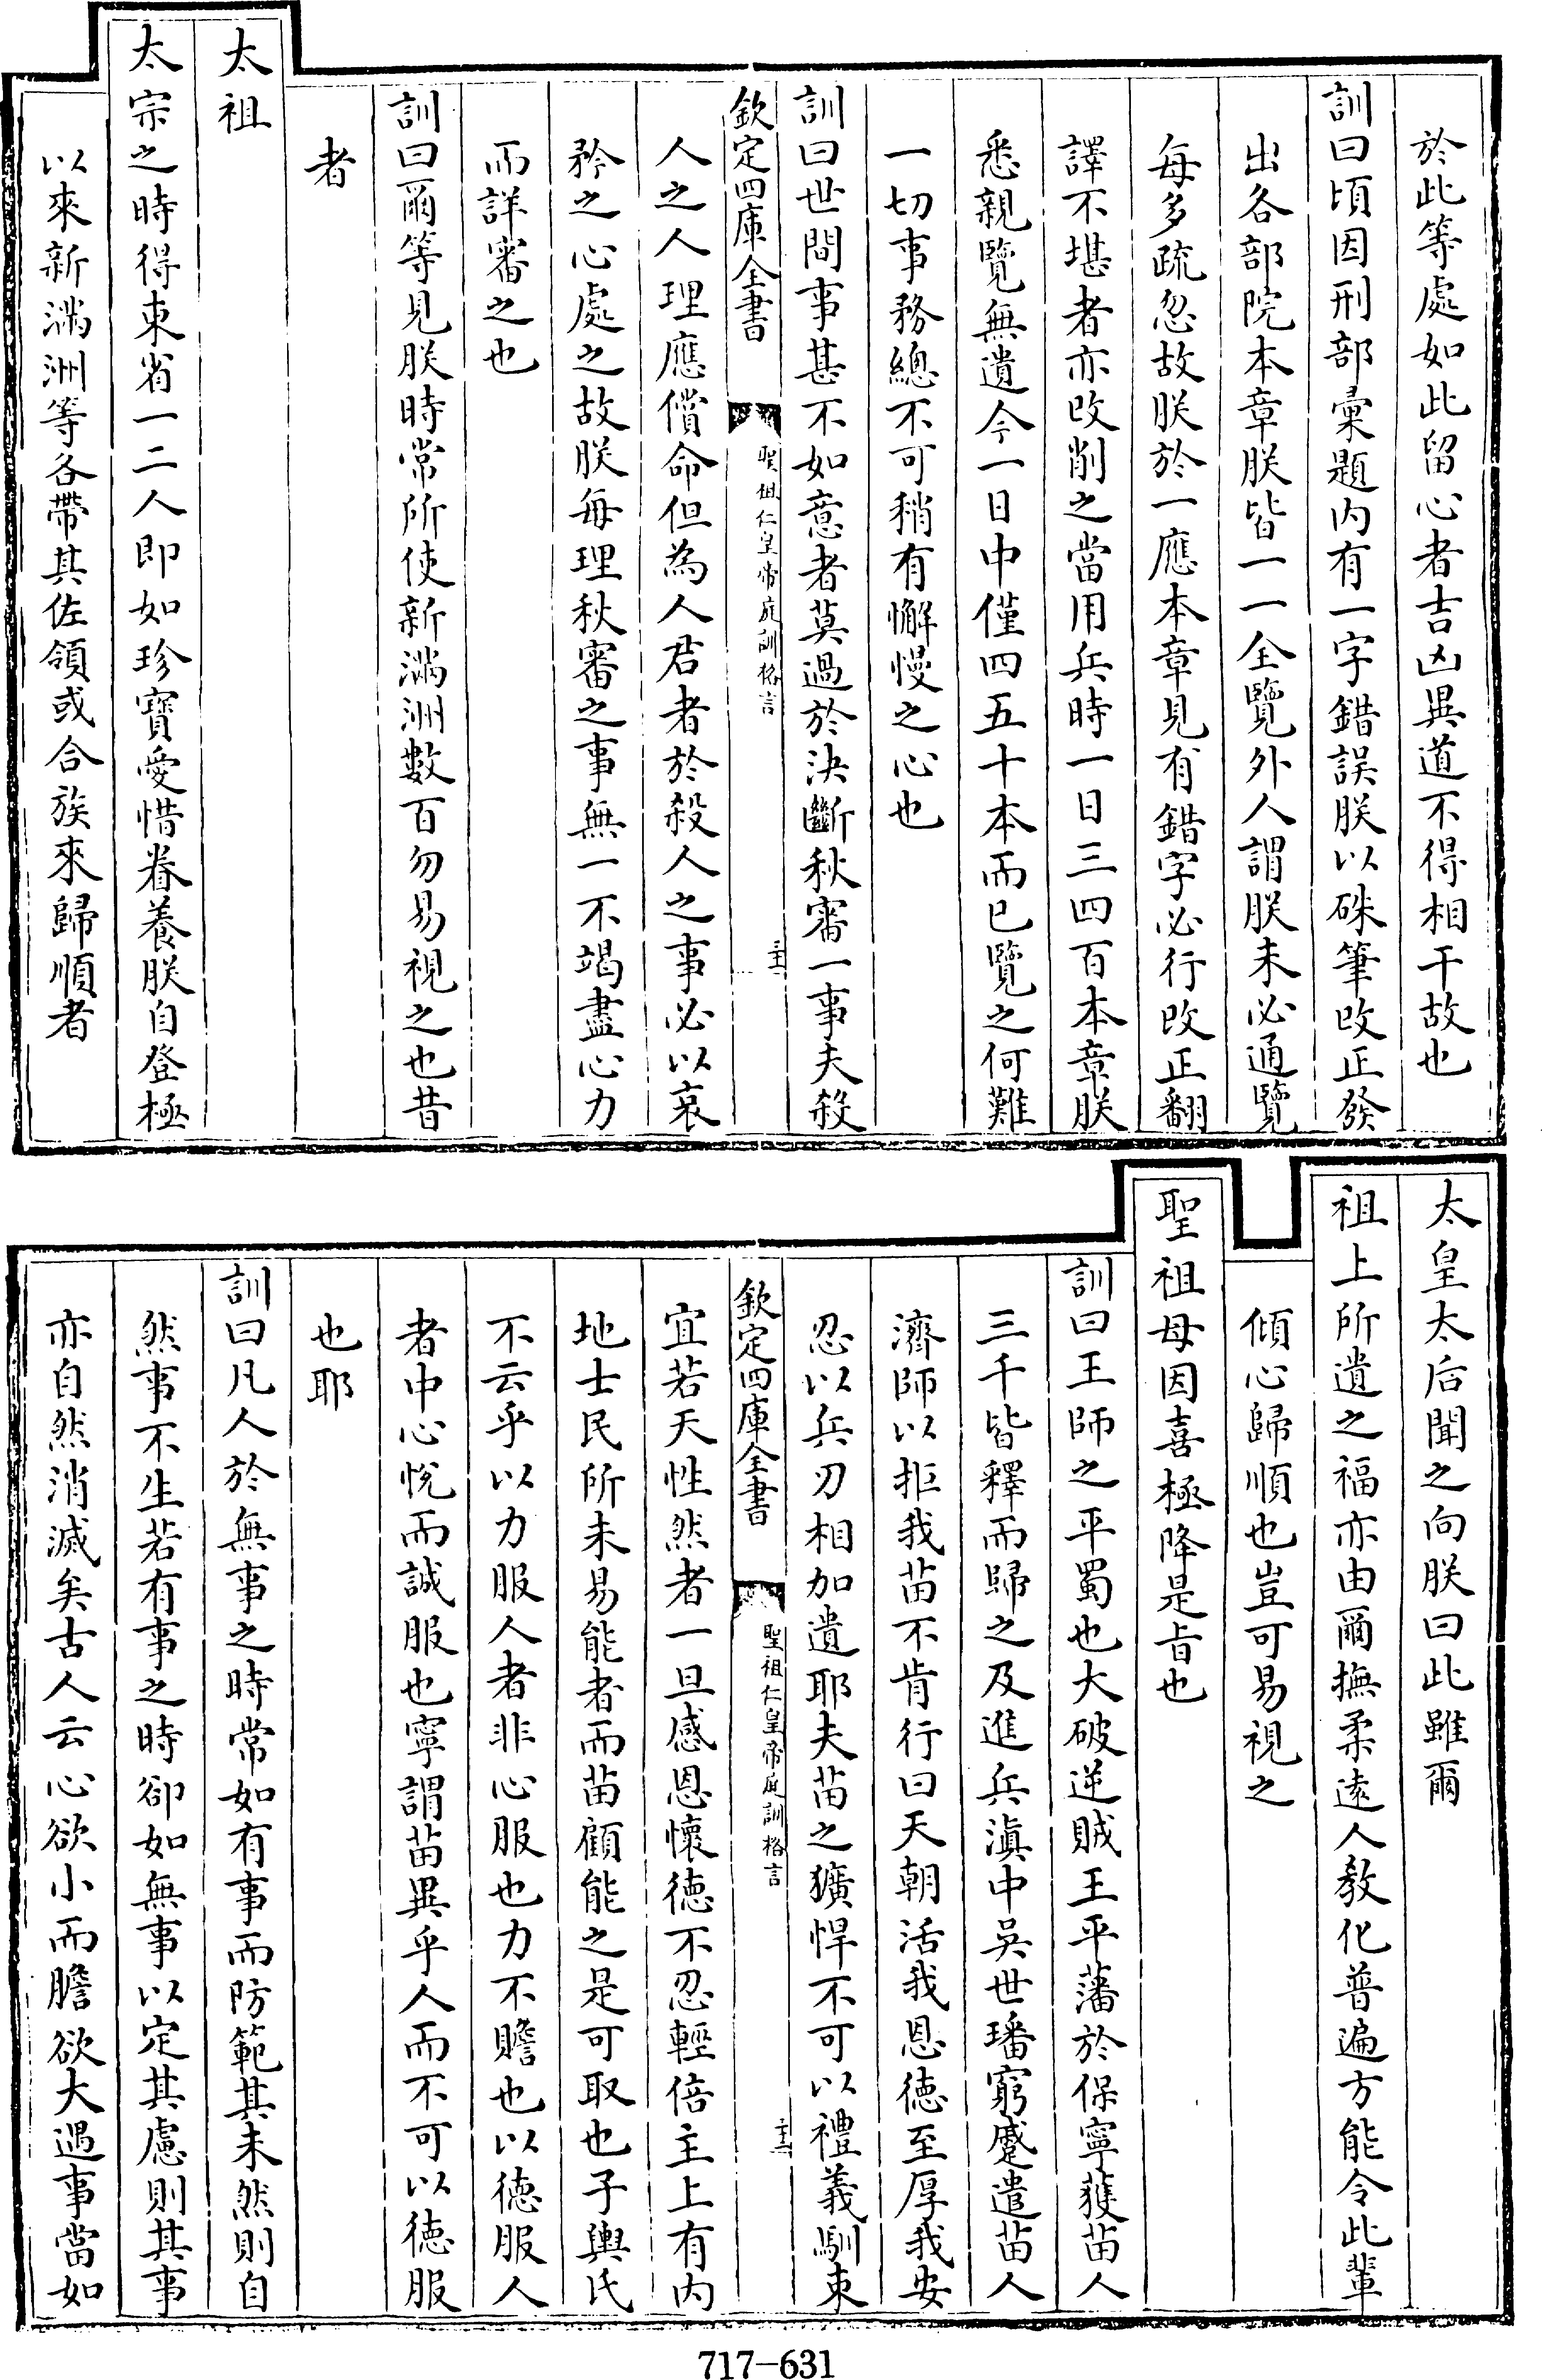 於此等處如此留心者吉凶異道不得相干故也
訓曰頃因刑部彙題内有一字錯誤朕以硃筆改正發
出各部院本章朕皆一一全覽外人謂朕未必通覽
每多疏忽故朕於一應本章見有錯字必行改正翻
譯不堪者亦改削之當用兵時一日三四百本章朕
悉親覽無遺今一日中僅四五十本而已覽之何難
一切事務總不可稍有懈慢之心也
訓曰世間事甚不如意者莫過於決斷秋審一事夫殺
欽定四庫全書
聖祖仁皇帝庭訓格言
人之人理應償命但為人君者於殺人之事必以哀
矜之心處之故朕每理秋審之事無一不竭盡心力
而詳審之也
訓曰爾等見朕時常所使新滿洲數百勿易視之也昔
者
太祖
太宗之時得東省一二人即如珍寳愛惜眷養朕自登極
以來新滿洲等各帶其佐領或合族來歸順者
太皇太后聞之向朕曰此雖爾
祖上所遺之福亦由爾撫柔逺人教化普遍方能令此輩
傾心歸順也豈可易視之
聖祖母因喜極降是㫖也
訓曰王師之平蜀也大破逆賊王平藩於保寧獲苗人
三千皆釋而歸之及進兵滇中吳世璠窮蹙遣苗人
濟師以拒我苗不肯行曰天朝活我恩徳至厚我安
忍以兵刃相加遺耶夫苗之獷悍不可以禮義馴束
欽定四庫全書
聖祖仁皇帝庭訓格言
宜若天性然者一旦感恩懷徳不忍輕倍主上有内
地士民所未易能者而苗顧能之是可取也子輿氏
不云乎以力服人者非心服也力不贍也以徳服人
者中心悅而誠服也寧謂苗異乎人而不可以徳服
也耶
訓曰凡人於無事之時常如有事而防範其未然則自
然事不生若有事之時卻如無事以定其慮則其事
亦自然消滅矣古人云心欲小而膽欲大遇事當如
717-631